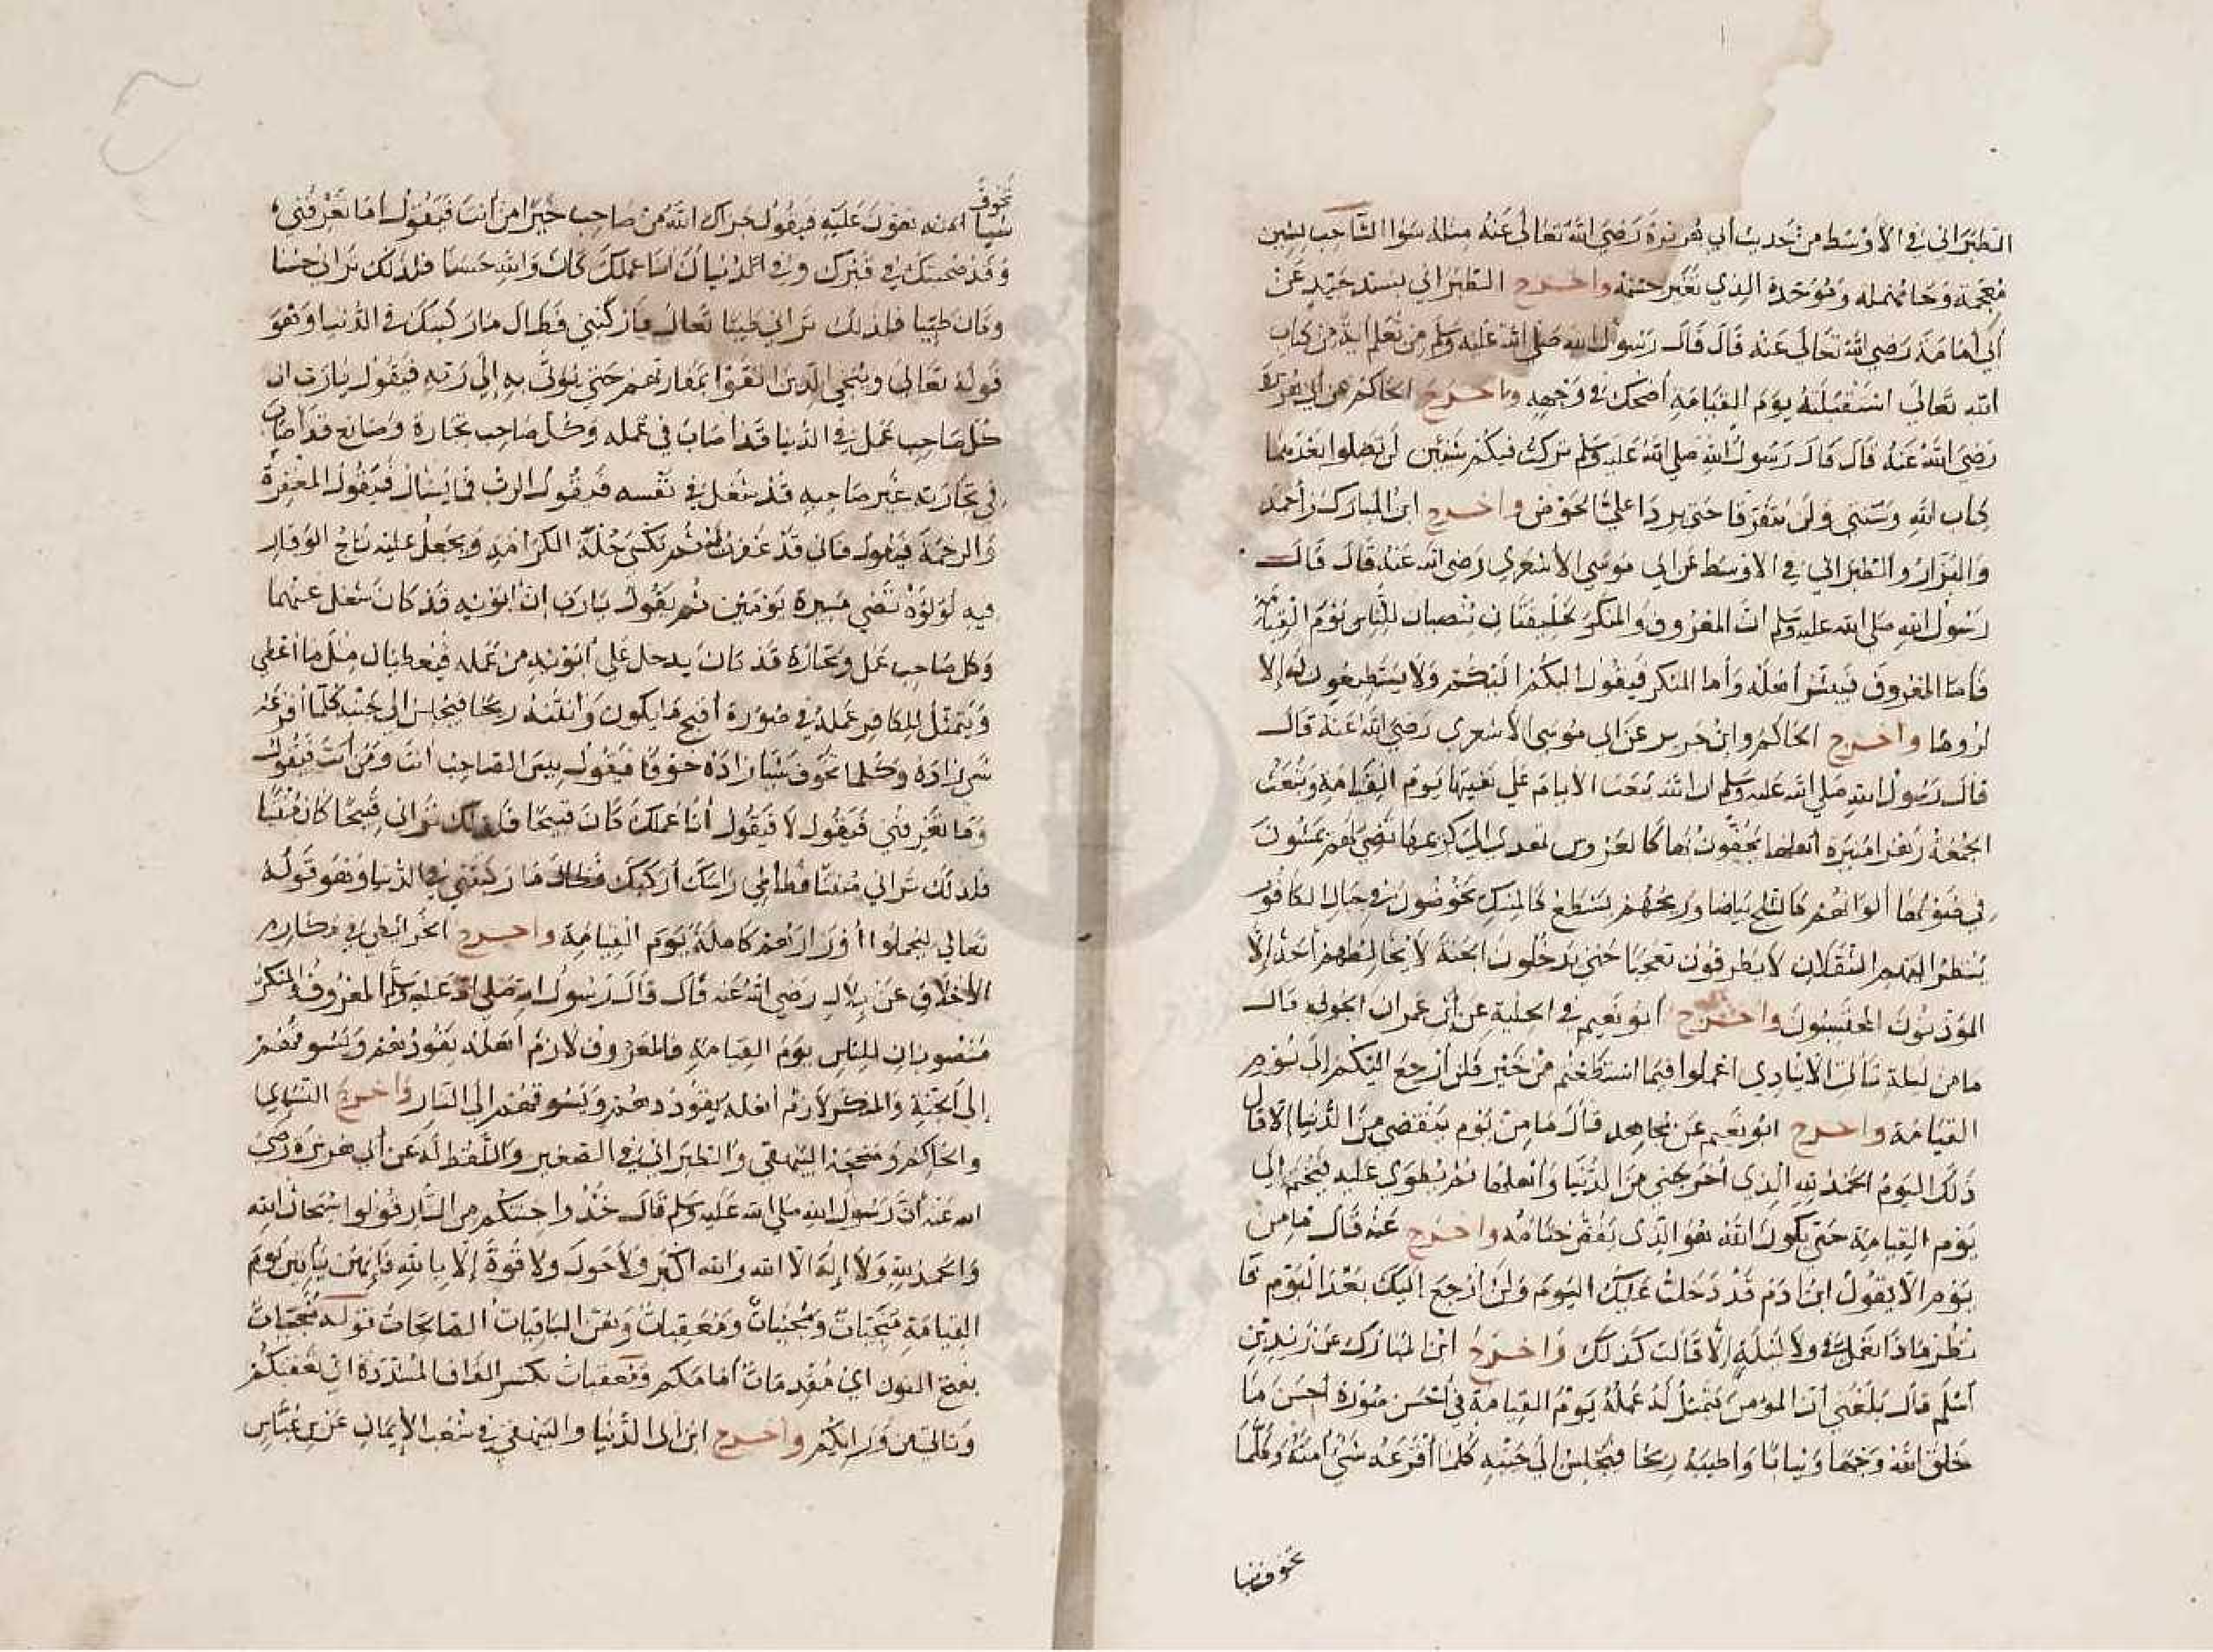 الطبراني في الأوسط من حديث أبي هريرة رضي الله تعالى عنه مثله سواء الشاحب بشين
معجمة وحا مهملة وموحدة الذي تغير جسمه واخرج الطبراني بسند جيد عن
أبي أمامة رضي الله تعالى عنه قال قال رسول الله صلى الله عليه وسلم من تعلم آية من كتاب
الله تعالى استقبلته يوم القيامة أضحك في وجهه واخرج الحاكم عن أبي هريرة
رضي الله عنه قال قال رسول الله صلى الله عليه وسلم تركت فيكم شيئين لن تضلوا بعدهما
كتاب الله وسنتي ولن يتفرقا حتى يردا علي الحوض واخرج ابن المبارك وأحمد
والبزار والطبراني في الاوسط عن أبي موسى الأشعري رضي الله عنه قال قال
رسول الله صلى الله عليه وسلم ان المعروف والمنكر لخليقتان ينصبان للناس يوم القيامة
فأما المعروف فيبشر أهله وأما المنكر فيقول اليكم اليكم ولا يستطيعون له إلا
لزوما واخرج الحاكم وابن جرير عن أبي موسى الأشعري رضي الله عنه قال
قال رسول الله صلى الله عليه وسلم ان الله يبعث الأيام على هيئتها يوم القيامة ويبعث
الجمعة زهرا منيرة أهلها يحفون بها كالعروس تهدى إلى كريمها تضيء لهم يمشون
في ضوئها ألوانهم كالثلج بياضا وريحهم يسطع كالمسك يخوضون في جبال الكافور
ينظر اليهم الثقلان لا يطرقون تعجبا حتى يدخلون الجنة لا يخالطهم أحد إلا
المؤذنون المحتسبون واخرج أبو نعيم في الحلية عن أبي عمران الجوني قال
ما من ليلة تأتي الا تنادي اعملوا فيما استطعتم من خير فلن أرجع اليكم إلى يوم
القيامة واخرج ابو نعيم عن مجاهد قال ما من يوم ينقضي من الدنيا الا قال
ذلك اليوم الحمد لله الذي أخرجني من الدنيا وأهلها ثم يطوى عليه فيختم إلى
يوم القيامة حتى يكون الله هو الذي يفض ختامه واخرج عنه قال ما من
يوم الا يقول ابن ادم قد دخلت عليك اليوم ولن أرجع اليك بعد اليوم فا
نظر ماذا تعمل في ولا ليلة إلا قالت كذلك واخرج ابن المبارك عن زيد بن
أسلم قال بلغني أن المؤمن يتمثل له عمله يوم القيامة في أحسن صورة أحسن ما
خلق الله وجها وثيابا وأطيبه ريحا فيجلس إلى جنبه كلما أفزعه شيء أمنه وكلما
تخوف شيئا
تخوف
شيئا هون عليه فيقول جزاك الله من صاحب خيرا من أنت فيقول اما تعرفني
وقد صحبتك في قبرك وفي الدنيا أنا عملك كان والله حسنا فلذلك تراني حسنا
وكان طيبا فلذلك تراني طيبا تعال فاركبني فطال ما ركبتك في الدنيا وهو
قوله تعالى وينجي الله الذين اتقوا بمفازتهم حتى يؤتى به إلى ربه فيقول يا رب ان
كل صاحب عمل في الدنيا قد أصاب في عمله وكل صاحب تجارة وصانع قد أصاب
في تجارته غير صاحبي قد شغل في نفسه فيقول الرب فما يسأل فيقول المغفرة
والرحمة فيقول فاني قد غفرت له ثم يكسى حلة الكرامة ويجعل عليه تاج الوقار
فيه لؤلؤة تضيء مسيرة يومين ثم يقول يا رب ان أبويه قد كان شغل عنهما
وكل صاحب عمل وتجارة قد كان يدخل على أبويه من عمله فيعطيان مثل ما أعطي
ويتمثل للكافر عمله في صورة أقبح ما يكون وأنتنه ريحا فيجلس إلى جنبه كلما أفزعه
شيء زاده وكلما تخوف شيئا زاده خوفا فيقول بئس الصاحب أنت ومن أنت فيقول
وما تعرفني فيقول لا فيقول أنا عملك كان قبيحا فلذلك تراني قبيحا كان منتنا
فلذلك تراني منتنا فطاطئ راسك أركبك فطال ما ركبتني في الدنيا وهو قوله
تعالى ليحملوا أوزارهم كاملة يوم القيامة واخرج الخرائطي في مكارم
الأخلاق عن بلال رضي الله عنه قال قال رسول الله صلى الله عليه وسلم المعروف والمنكر
منصوبان للناس يوم القيامة فالمعروف لازم أهله يقودهم ويسوقهم
إلى الجنة والمنكر لازم أهله يقودهم ويسوقهم إلى النار واخرج النسائي
والحاكم وصححه البيهقي والطبراني في الصغير واللفظ له عن أبي هريرة رضي
الله عنه أن رسول الله صلى الله عليه وسلم قال خذوا جنتكم من النار قولوا سبحان الله
والحمد لله ولا إله الا الله والله اكبر ولا حول ولا قوة إلا بالله فإنهن يأتين يوم
القيامة منجيات ومجنبات ومعقبات وهن الباقيات الصالحات قوله مجنبات
بفتح النون اي مقدمات أمامكم ومعقبات بكسر القاف المشددة اي تعقبكم
وتأتي من ورائكم واخرج ابن أبي الدنيا والبيهقي في شعب الإيمان عن بن عباس